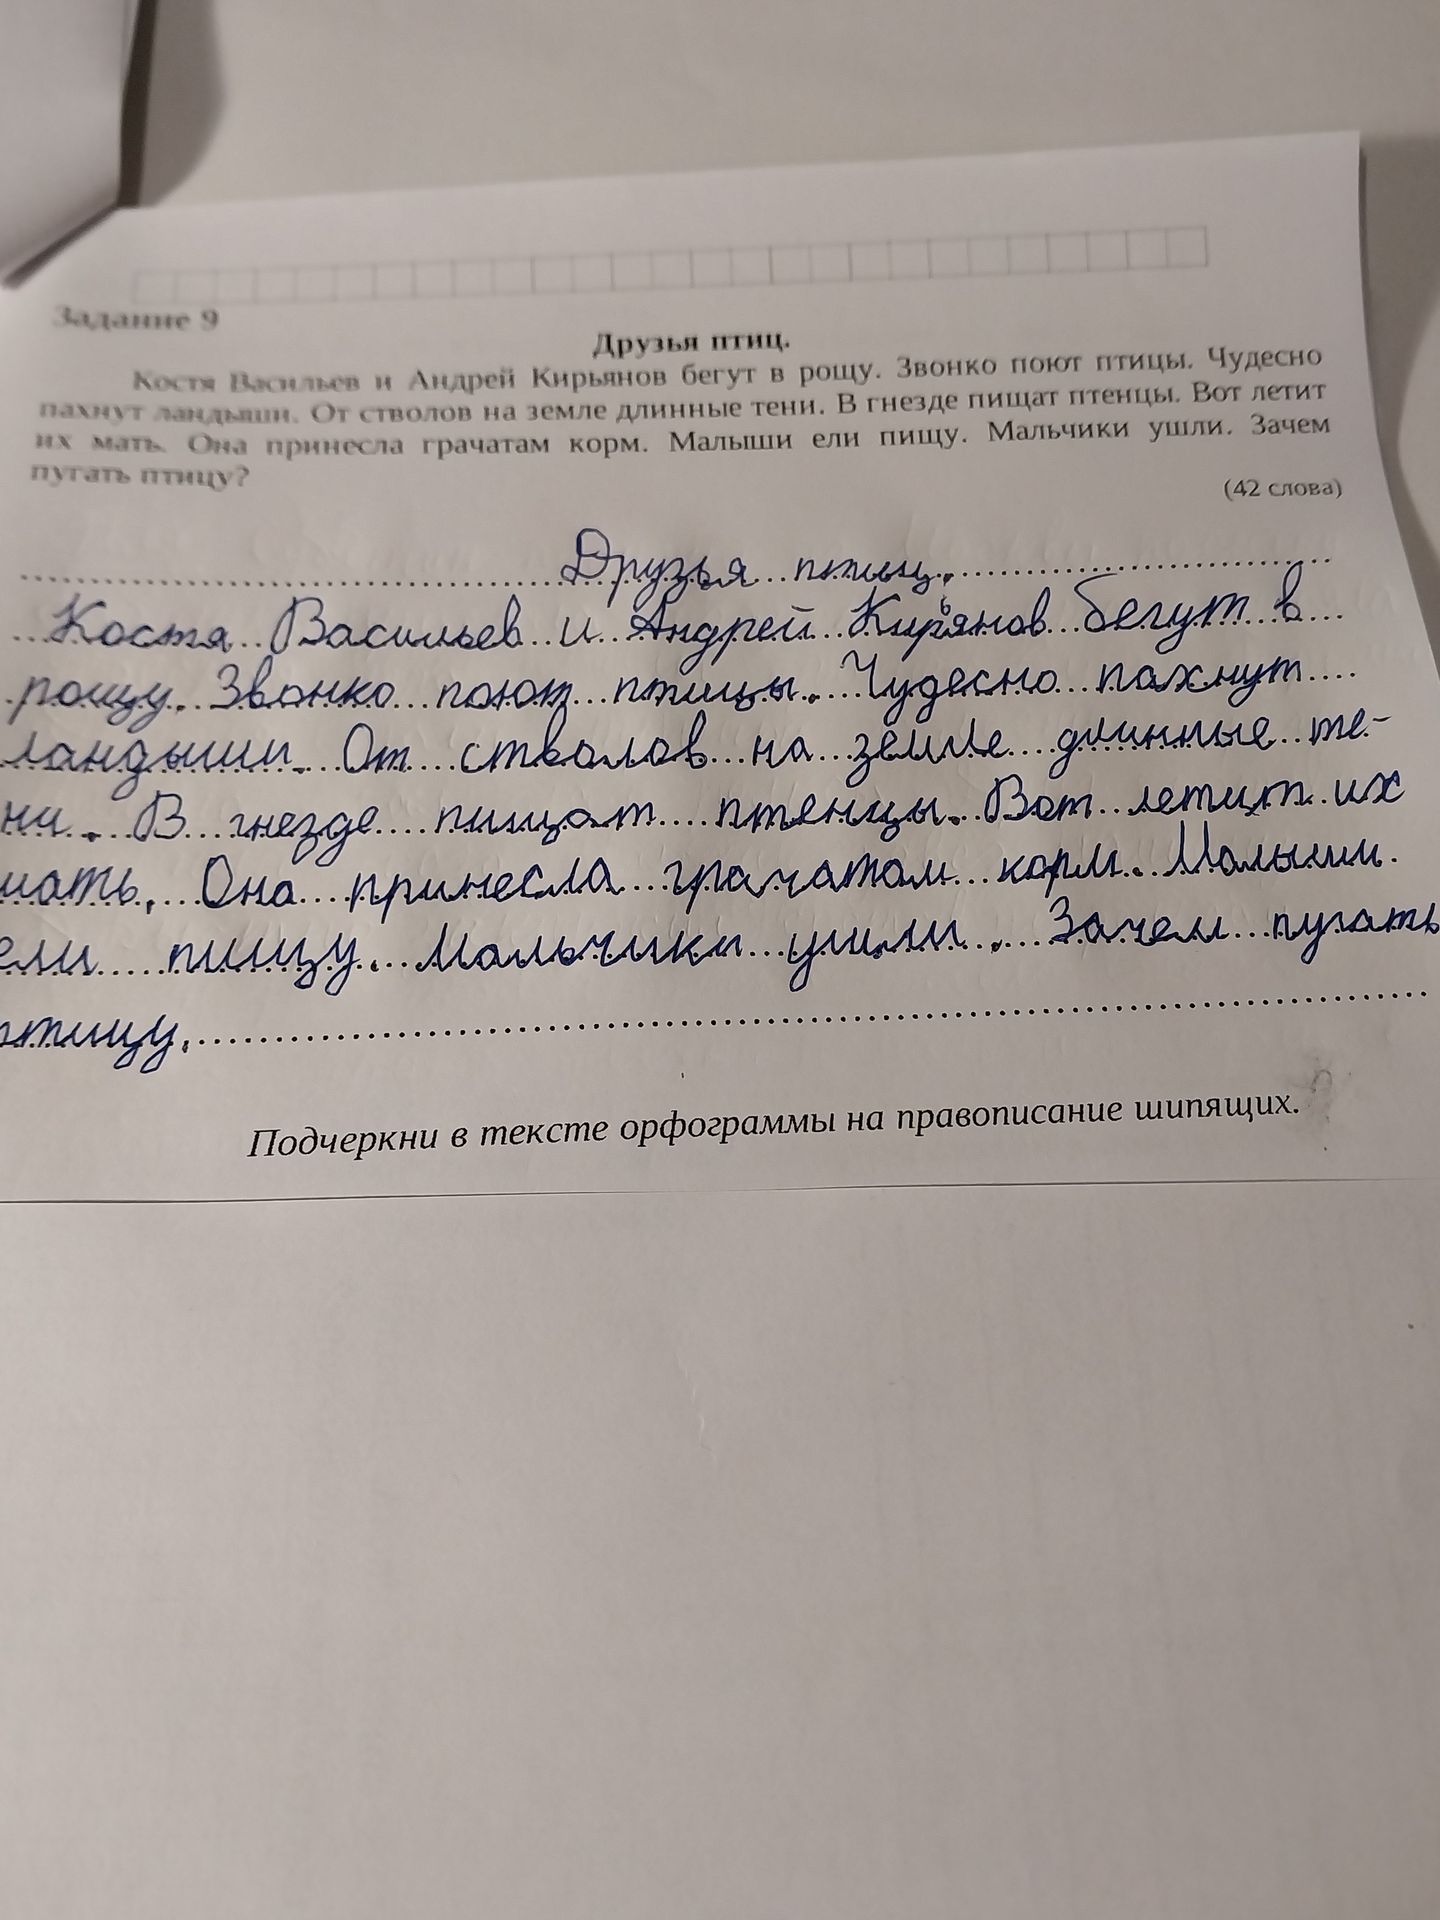 Задание 9
Друзья птиц.
Костя Васильев и Андрей Кирьянов бегут в рощу. Звонко поют птицы. Чудесно
пахнут ландыши. От стволов на земле длинные тени. В гнезде пищат птенцы. Вот летит
их мать. Она принесла грачатам корм. Малыши ели пищу. Мальчики ушли. Зачем
пугать птицу?
(42 слова)
Друзья птиц.
Костя Васильев и Андрей Кирьянов бегут в
рощу. Звонко поют птицы. Чудесно пахнут
ландыши. От стволов на земле длинные те-
ни. В гнезде пищат птенцы. Вот летит их
мать. Она принесла грачатам корм. Малыши
ели пищу. Мальчики ушли. Зачем пугать
птицу.
Подчеркни в тексте орфограммы на правописание шипящих.